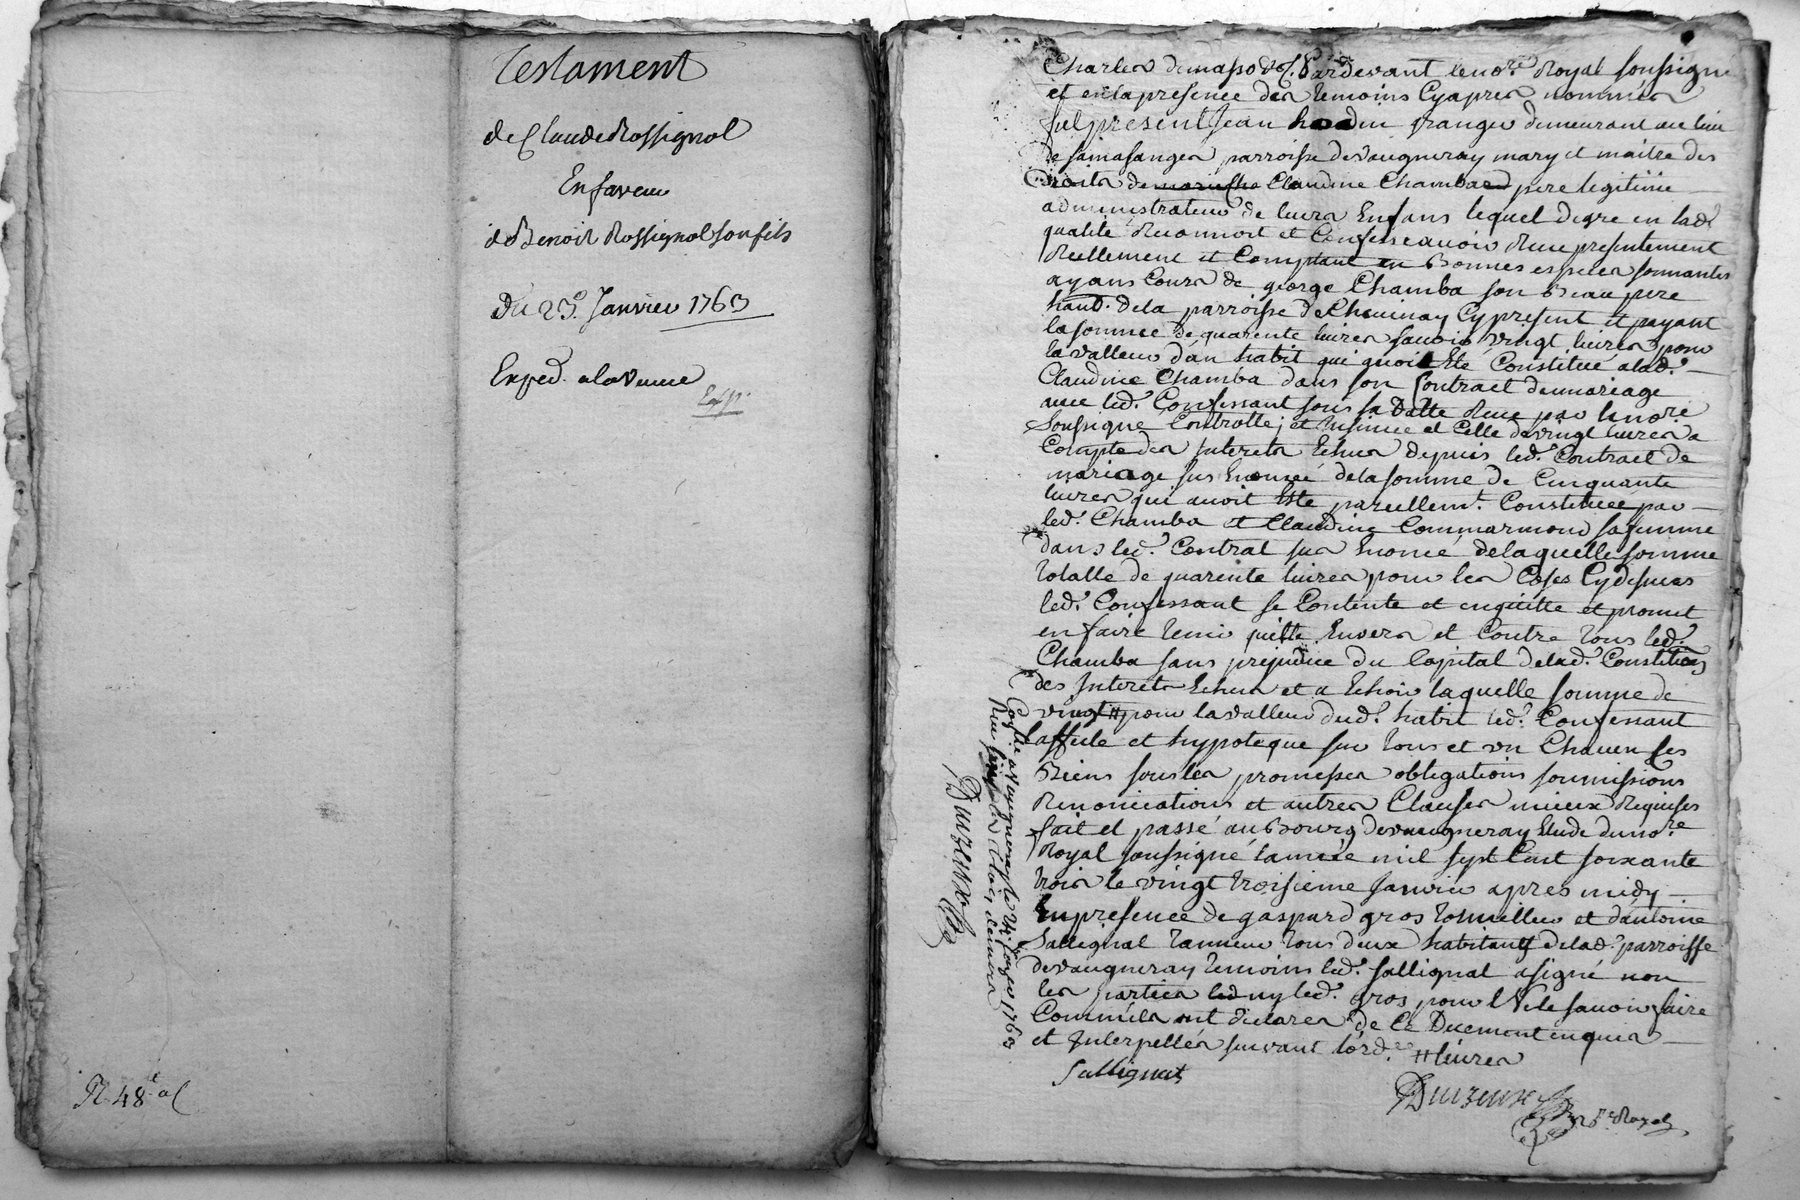 Testament
de Claude Rossignol
En faveur
de Benoit Rossignol son fils
Du 23e. Janvier 1763
Exped. a la veuve
Exp.
Pardevant le no.re Royal soussigné
et en la presence des temoins Cyapres nommes
fut present Jean granger demeurant au lieu
parroisse de vaugneray mary et maitre des
Droits de Claudine Chambard pere legitime
administrateur de leurs Enfans lequel Degre en lad.
qualité Reconnoit et Confesse avoir Receu presentement
Reellement et Comptant en Bonnes especes sonnantes
ayans Cours de george Chamba son Beau pere
habt. de la parroisse de Chevinay Cy present et payant
la somme de quarente livres savoir vingt livres pour
la valleur d'un habit qui avoit Eté Constitué a lad.
Claudine Chamba dans son Contract de mariage
avec led. Confessant sous sa Datte Receu par le no.re
soussigné Controllé et Insinué et Celle de vingt livres a
Compte des Interets Echus depuis led. Contract de
mariage sus Enoncé de la somme de Cinquante
livres qui avoit Eté pareillemt. Constituée par
led. Chamba et Claudine Commarmond sa femme
dans led. Contrat sus Enoncé de laquelle somme
totalle de quarente livres pour les Coses Cydessus
led. Confessant se Contente et en quitte et promet
en faire tenir quitte Envers et Contre tous led.
Chamba sans prejudice du Capital de lad. Constitu͠on
des Interets Echus et a Echoir laquelle somme de
vingt # pour la valleur dud. habit led. Confessant
affecte et hypoteque sur tous et un Chacun ses
Biens sous les promesses obligations soumissions
Renonciations et autres Clauses mieux Requises
fait et passé au Bourg de vaugneray Etude du no.re
Royal soussigné l'année mil sept Cent soixante
trois le vingt troisieme Janvier apres midy
En presence de gaspard gros et d'antoine
Sallignat tous deux habitants de lad. parroisse
de vaugneray temoins led. sallignat a signé non
les parties ny led. gros pour ne le savoir faire
Comme ils ont declarés de Ce Duement enquis
et Interpellés suivant l'ord.e # livres
Sallignat
no.re Royal
Con.lé a Vaugneray le 24 Janvier 1763
Receu